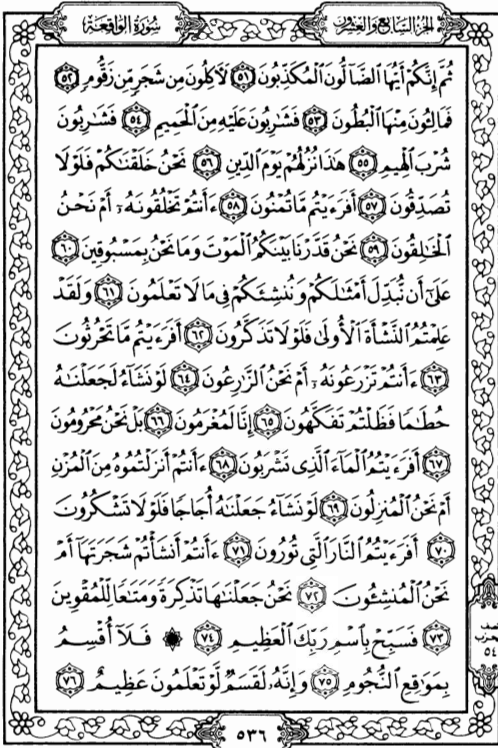 سُورَةُ الوَاقِعَةِ الجُزءُ السَّابِعُ وَالعِشرُونَ
ثُمَّ إِنَّكُمْ أَيُّهَا ٱلضَّآلُّونَ ٱلْمُكَذِّبُونَ ٥١ لَءَاكِلُونَ مِن شَجَرٍ مِّن زَقُّومٍ ٥٢
فَمَالِـُٔونَ مِنْهَا ٱلْبُطُونَ ٥٣ فَشَٰرِبُونَ عَلَيْهِ مِنَ ٱلْحَمِيمِ ٥٤ فَشَٰرِبُونَ
شُرْبَ ٱلْهِيمِ ٥٥ هَٰذَا نُزُلُهُمْ يَوْمَ ٱلدِّينِ ٥٦ نَحْنُ خَلَقْنَٰكُمْ فَلَوْلَا
تُصَدِّقُونَ ٥٧ أَفَرَءَيْتُم مَّا تُمْنُونَ ٥٨ ءَأَنتُمْ تَخْلُقُونَهُۥٓ أَمْ نَحْنُ
ٱلْخَٰلِقُونَ ٥٩ نَحْنُ قَدَّرْنَا بَيْنَكُمُ ٱلْمَوْتَ وَمَا نَحْنُ بِمَسْبُوقِينَ ٦٠
عَلَىٰٓ أَن نُّبَدِّلَ أَمْثَٰلَكُمْ وَنُنشِئَكُمْ فِى مَا لَا تَعْلَمُونَ ٦١ وَلَقَدْ
عَلِمْتُمُ ٱلنَّشْأَةَ ٱلْأُولَىٰ فَلَوْلَا تَذَكَّرُونَ ٦٢ أَفَرَءَيْتُم مَّا تَحْرُثُونَ
٦٣ ءَأَنتُمْ تَزْرَعُونَهُۥٓ أَمْ نَحْنُ ٱلزَّٰرِعُونَ ٦٤ لَوْ نَشَآءُ لَجَعَلْنَٰهُ
حُطَٰمًا فَظَلْتُمْ تَفَكَّهُونَ ٦٥ إِنَّا لَمُغْرَمُونَ ٦٦ بَلْ نَحْنُ مَحْرُومُونَ
٦٧ أَفَرَءَيْتُمُ ٱلْمَآءَ ٱلَّذِى تَشْرَبُونَ ٦٨ ءَأَنتُمْ أَنزَلْتُمُوهُ مِنَ ٱلْمُزْنِ
أَمْ نَحْنُ ٱلْمُنزِلُونَ ٦٩ لَوْ نَشَآءُ جَعَلْنَٰهُ أُجَاجًا فَلَوْلَا تَشْكُرُونَ
٧٠ أَفَرَءَيْتُمُ ٱلنَّارَ ٱلَّتِى تُورُونَ ٧١ ءَأَنتُمْ أَنشَأْتُمْ شَجَرَتَهَآ أَمْ
نَحْنُ ٱلْمُنشِـُٔونَ ٧٢ نَحْنُ جَعَلْنَٰهَا تَذْكِرَةً وَمَتَٰعًا لِّلْمُقْوِينَ
٧٣ فَسَبِّحْ بِٱسْمِ رَبِّكَ ٱلْعَظِيمِ ٧٤ ۞ فَلَآ أُقْسِمُ
بِمَوَٰقِعِ ٱلنُّجُومِ ٧٥ وَإِنَّهُۥ لَقَسَمٌ لَّوْ تَعْلَمُونَ عَظِيمٌ ٧٦
نصف
الحزب
٥٤
٥٣٦